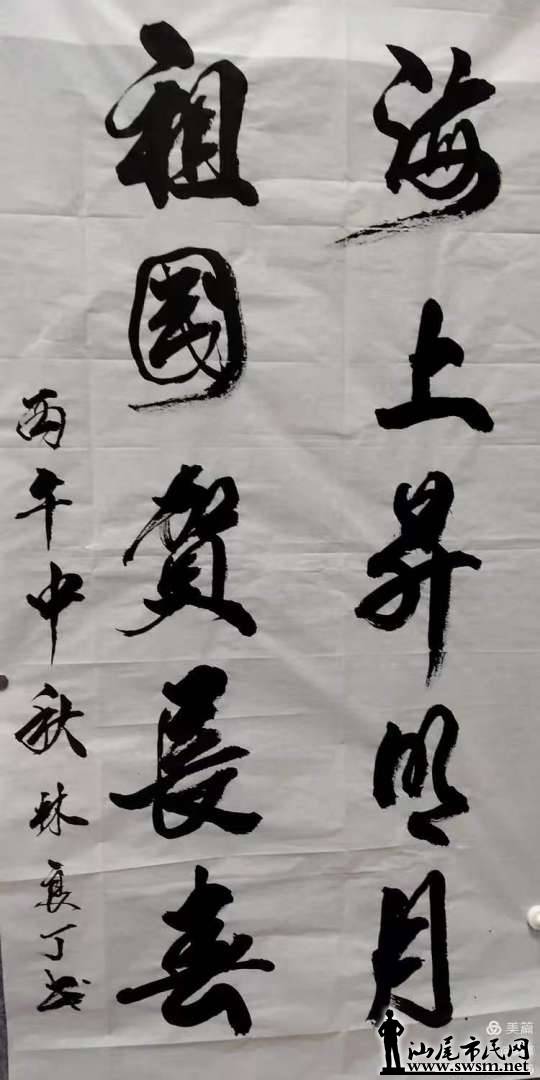 海上昇明月
祖國賀長春
丙午中秋林良丁书
美篇
汕尾市民网
www.swsm.net